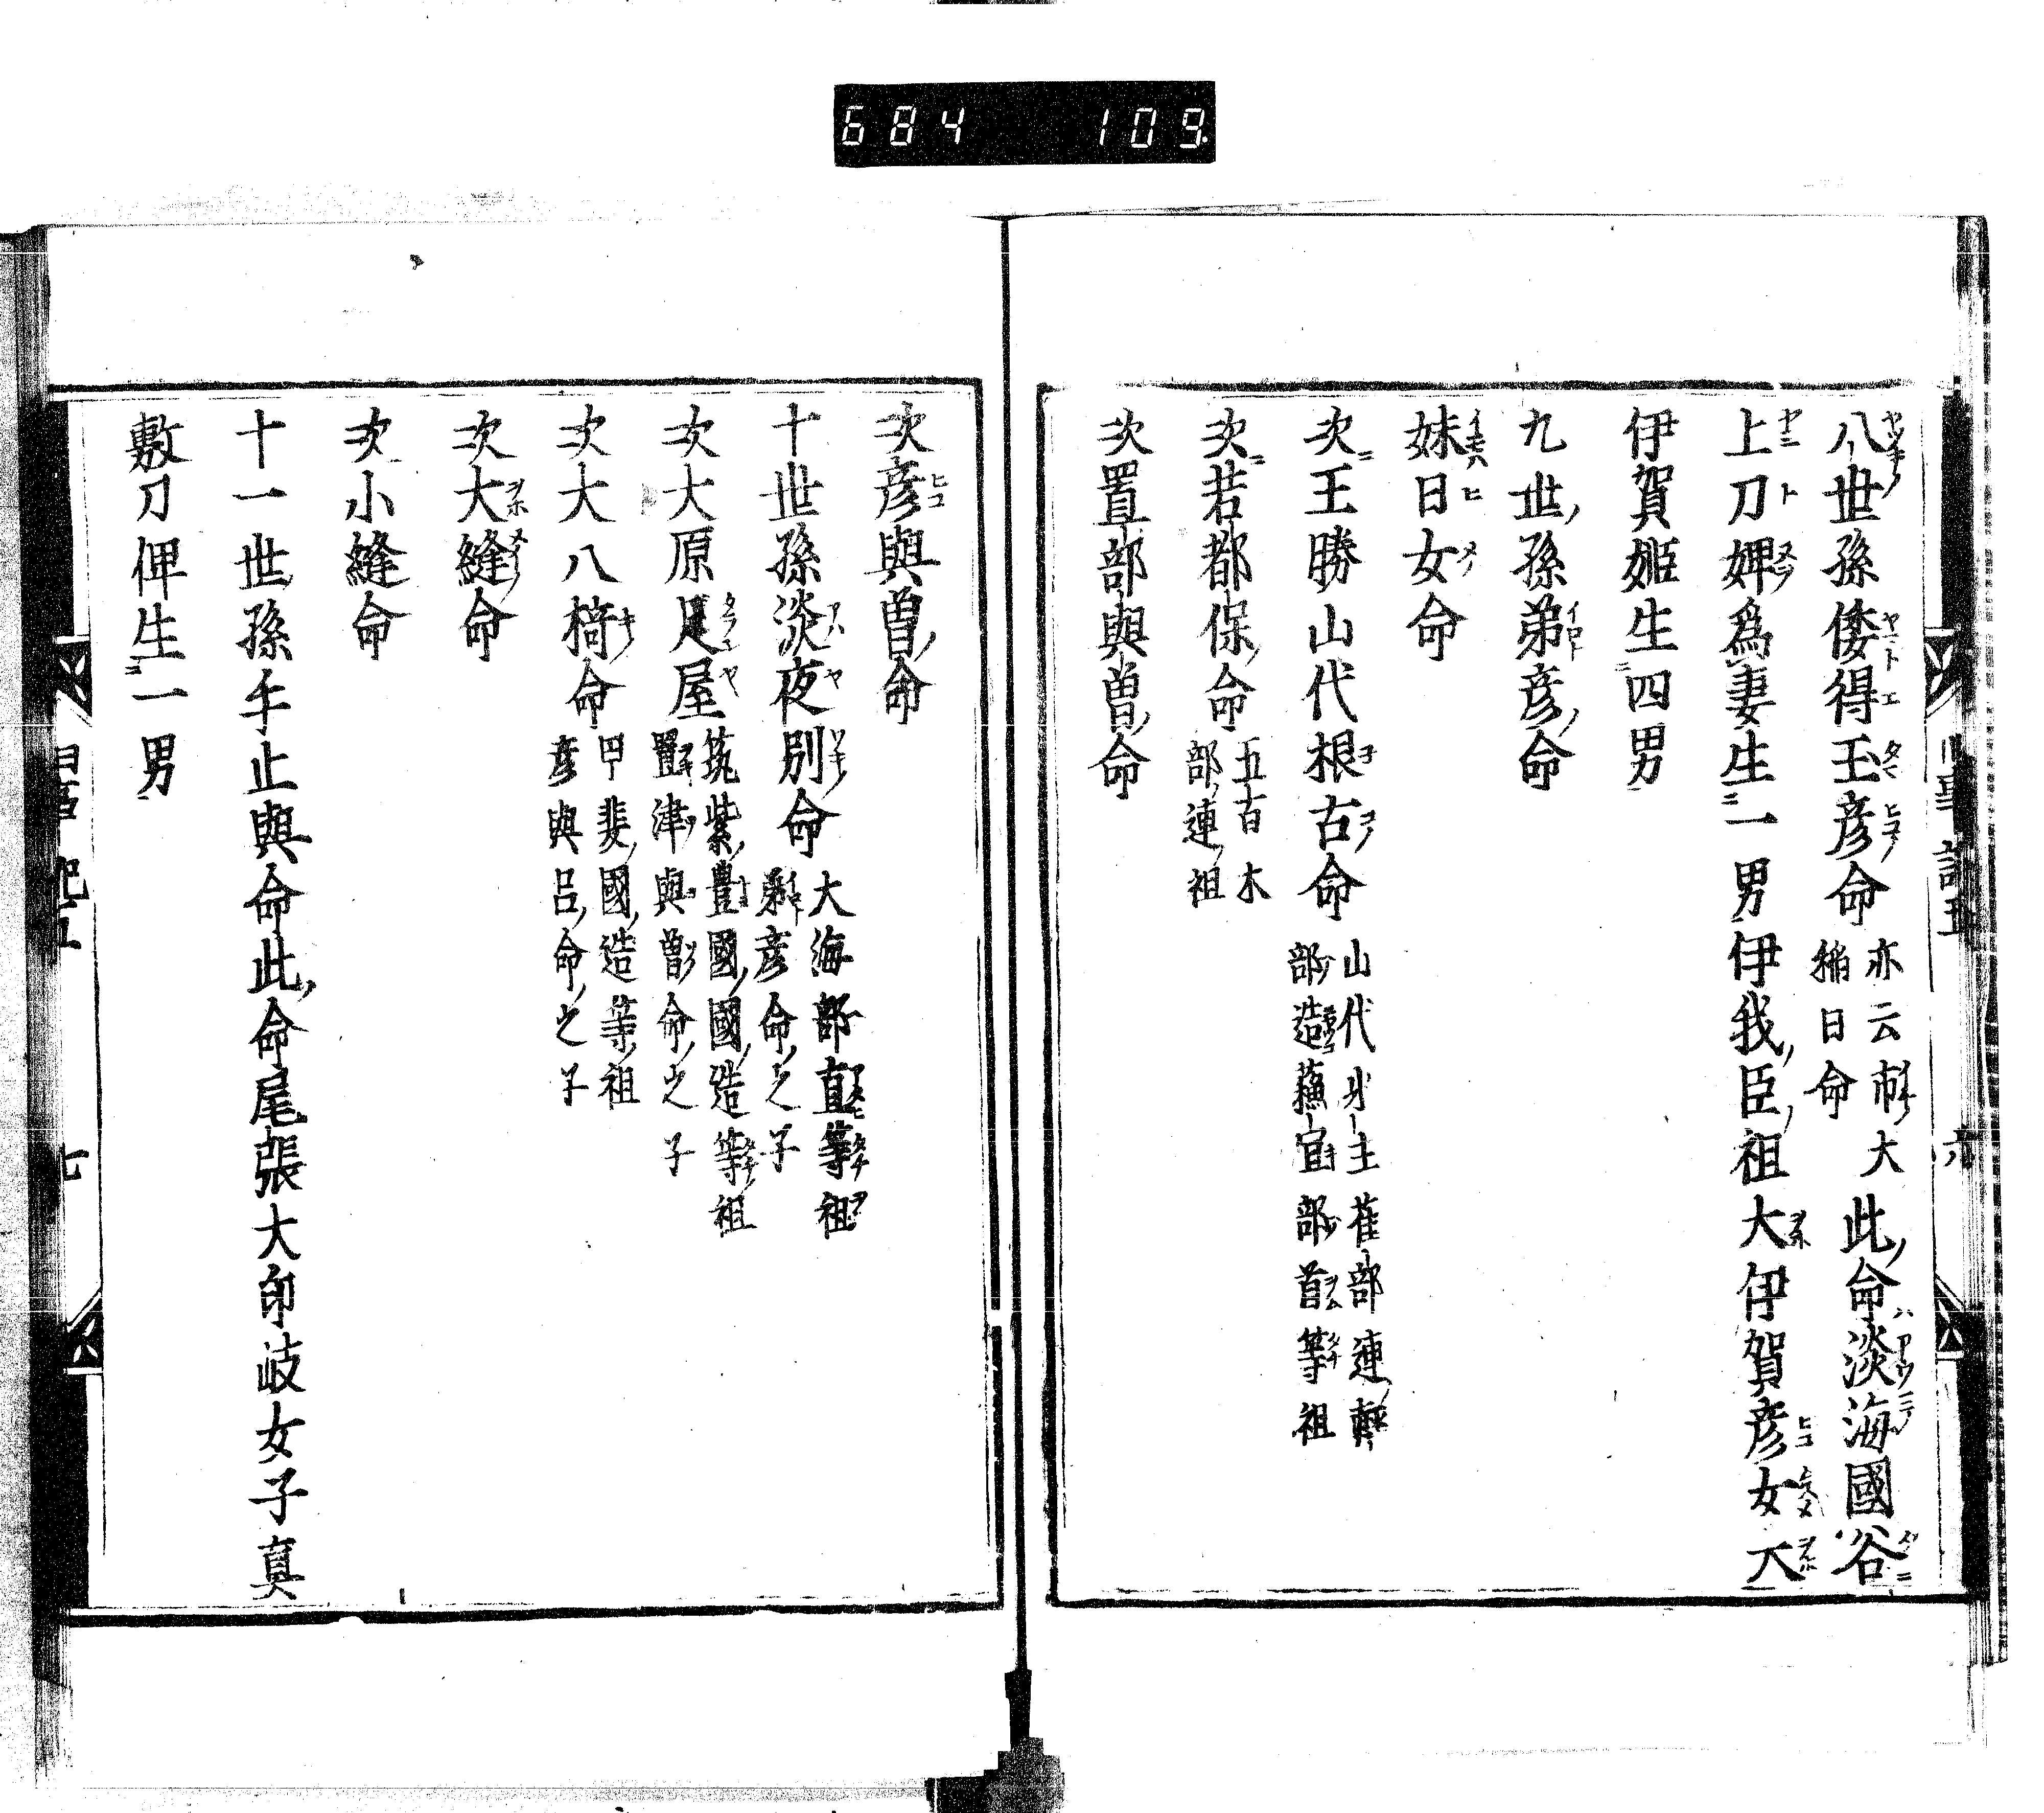 684 109
八世孫倭得玉彦命 亦云市大稲日命 此命淡海國谷
上刀婢爲妻生一男伊我臣祖大伊賀彦女大
伊賀姫生四男
九世孫弟彦命
妹日女命
次玉勝山代根古命 山代水主雀部連軽部造蘓宜部首等祖
次若都保命 五百木部連祖
次置部與曽命
次彦與曽命
十世孫淡夜別命 大海部直等祖弟彦命之子
次大原足尼屋 筑紫豊國國造等祖置津與曽命之子
次大八椅命 甲斐國造等祖彦與呂命之子
次大縫命
次小縫命
十一世孫乎止與命此命尾張大印岐女子真
敷刀俾生一男
七